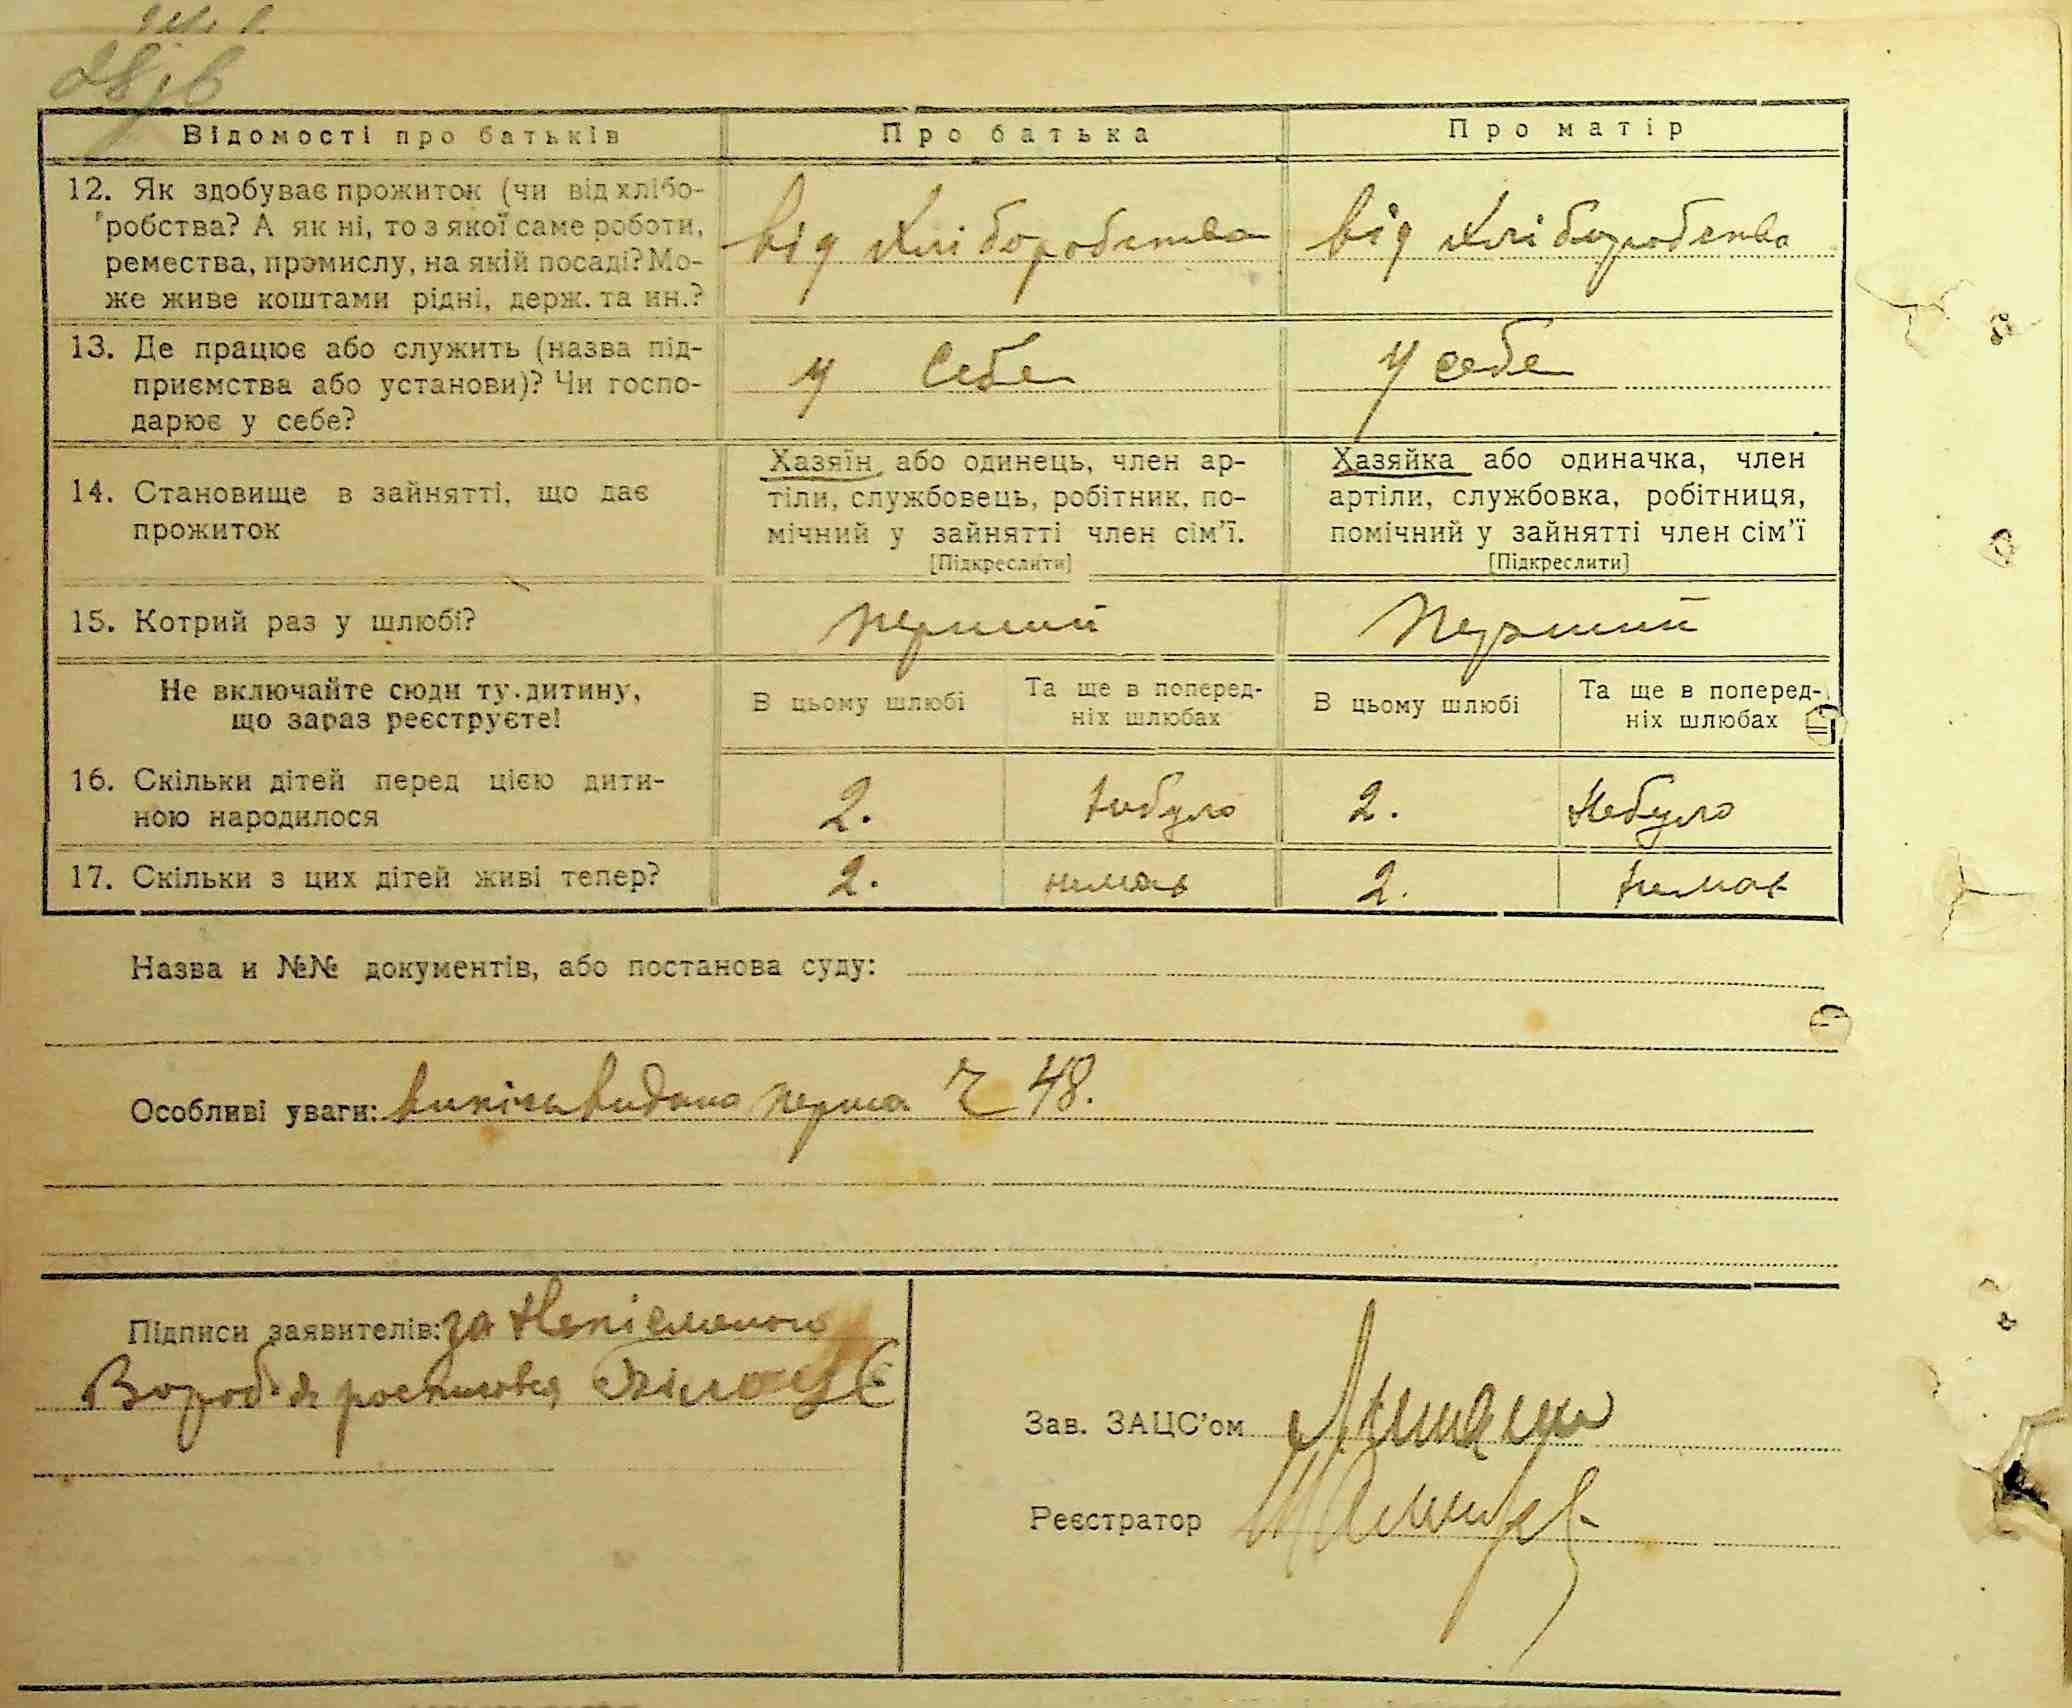 Відомості про батьків
Про батька
Про матір
12. Як здобуває прожиток (чи від хлібо-
робства? А як ні, то з якої саме роботи,
ремества, промислу, на якій посаді? Мо-
же живе коштами рідні, держ. та ин.?
від хліборобства
від хліборобства
13. Де працює або служить (назва під-
приємства або установи)? Чи госпо-
дарює у себе?
у себе
у себе
14. Становище в зайнятті, що дає
прожиток
Хазяїн або одинець, член ар-
тіли, службовець, робітник, по-
мічний у зайнятті член сім’ї.
[Підкреслити]
Хазяйка або одиначка, член
артіли, службовка, робітниця,
помічний у зайнятті член сім’ї
[Підкреслити]
15. Котрий раз у шлюбі?
перший
Перший
Не включайте сюди ту дитину,
що зараз реєструєте!
В цьому шлюбі
Та ще в поперед-
ніх шлюбах
В цьому шлюбі
Та ще в поперед-
ніх шлюбах
16. Скільки дітей перед цією дити-
ною народилося
2.
небуло
2.
Небуло
17. Скільки з цих дітей живі тепер?
2.
нимає
2.
нимає
Назва и №№ документів, або постанова суду:
Особливі уваги: випись видана перша 48.
Підписи заявителів: за Неписьменого
Зав. ЗАЦС’ом
Реєстратор